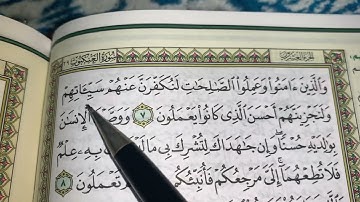 الجزء العشرون سورة العنكبوت ٢٩
وَٱلَّذِينَ ءَامَنُوا۟ وَعَمِلُوا۟ ٱلصَّٰلِحَٰتِ لَنُكَفِّرَنَّ عَنْهُمْ سَيِّـَٔاتِهِمْ
وَلَنَجْزِيَنَّهُمْ أَحْسَنَ ٱلَّذِى كَانُوا۟ يَعْمَلُونَ ٧ ٱلْإِنسَٰنَ
بِوَٰلِدَيْهِ حُسْنًا وَإِن جَٰهَدَاكَ لِتُشْرِكَ بِى مَا بِهِۦ عِلْمٌ
فَلَا تُطِعْهُمَآ إِلَىَّ مَرْجِعُكُمْ فَأُنَبِّئُكُم تَعْمَلُونَ ٨